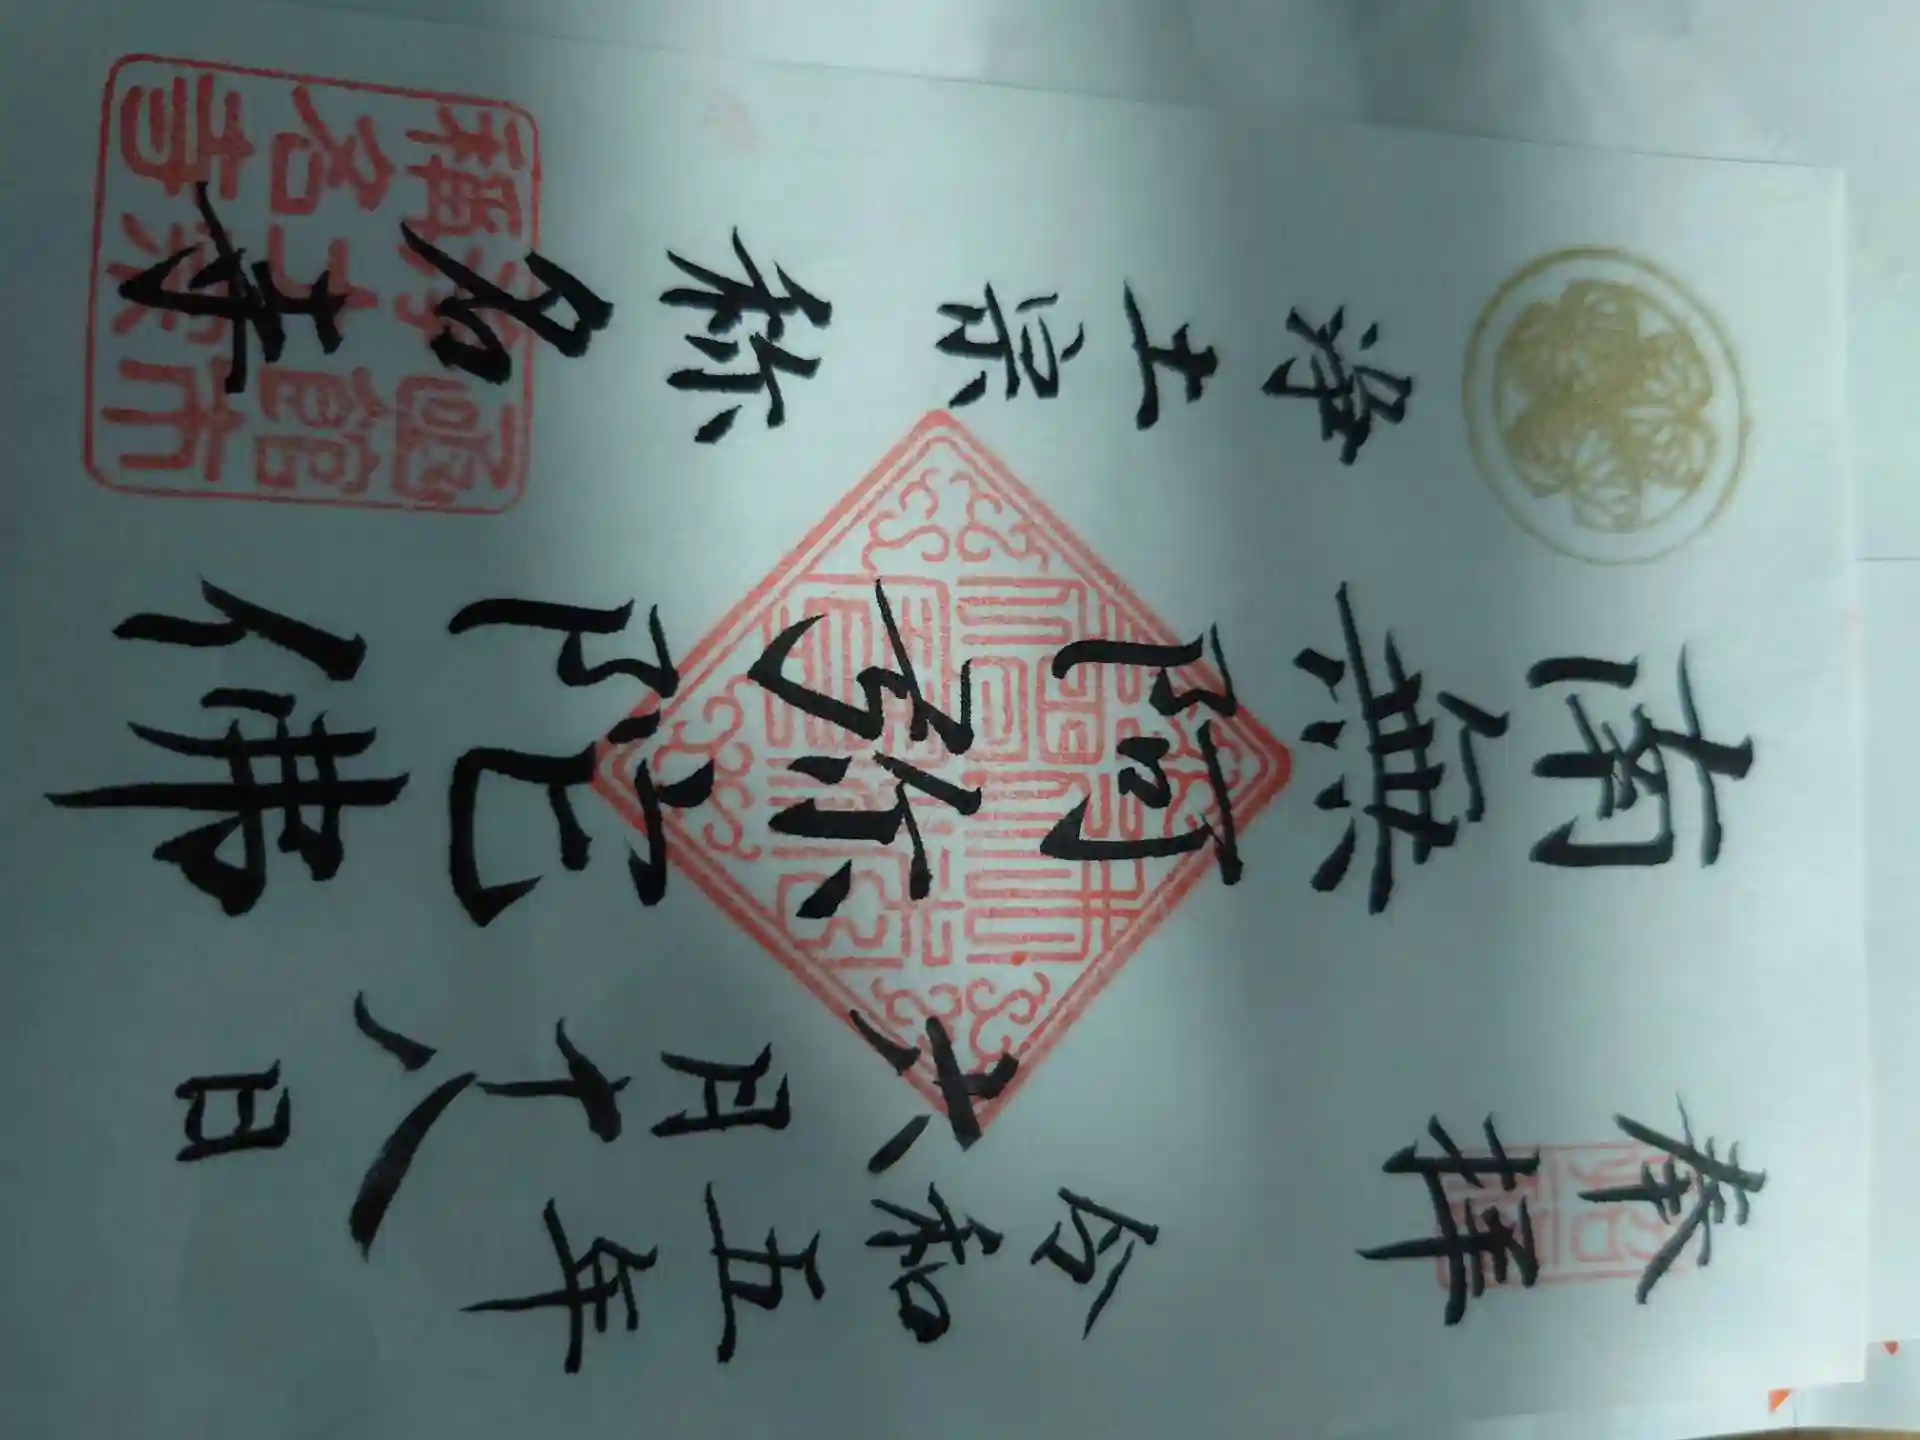 奉拝
令和五年
六月十八日
南無阿弥陀佛
浄土宗 称名寺
函館市
浄土宗
稱名寺